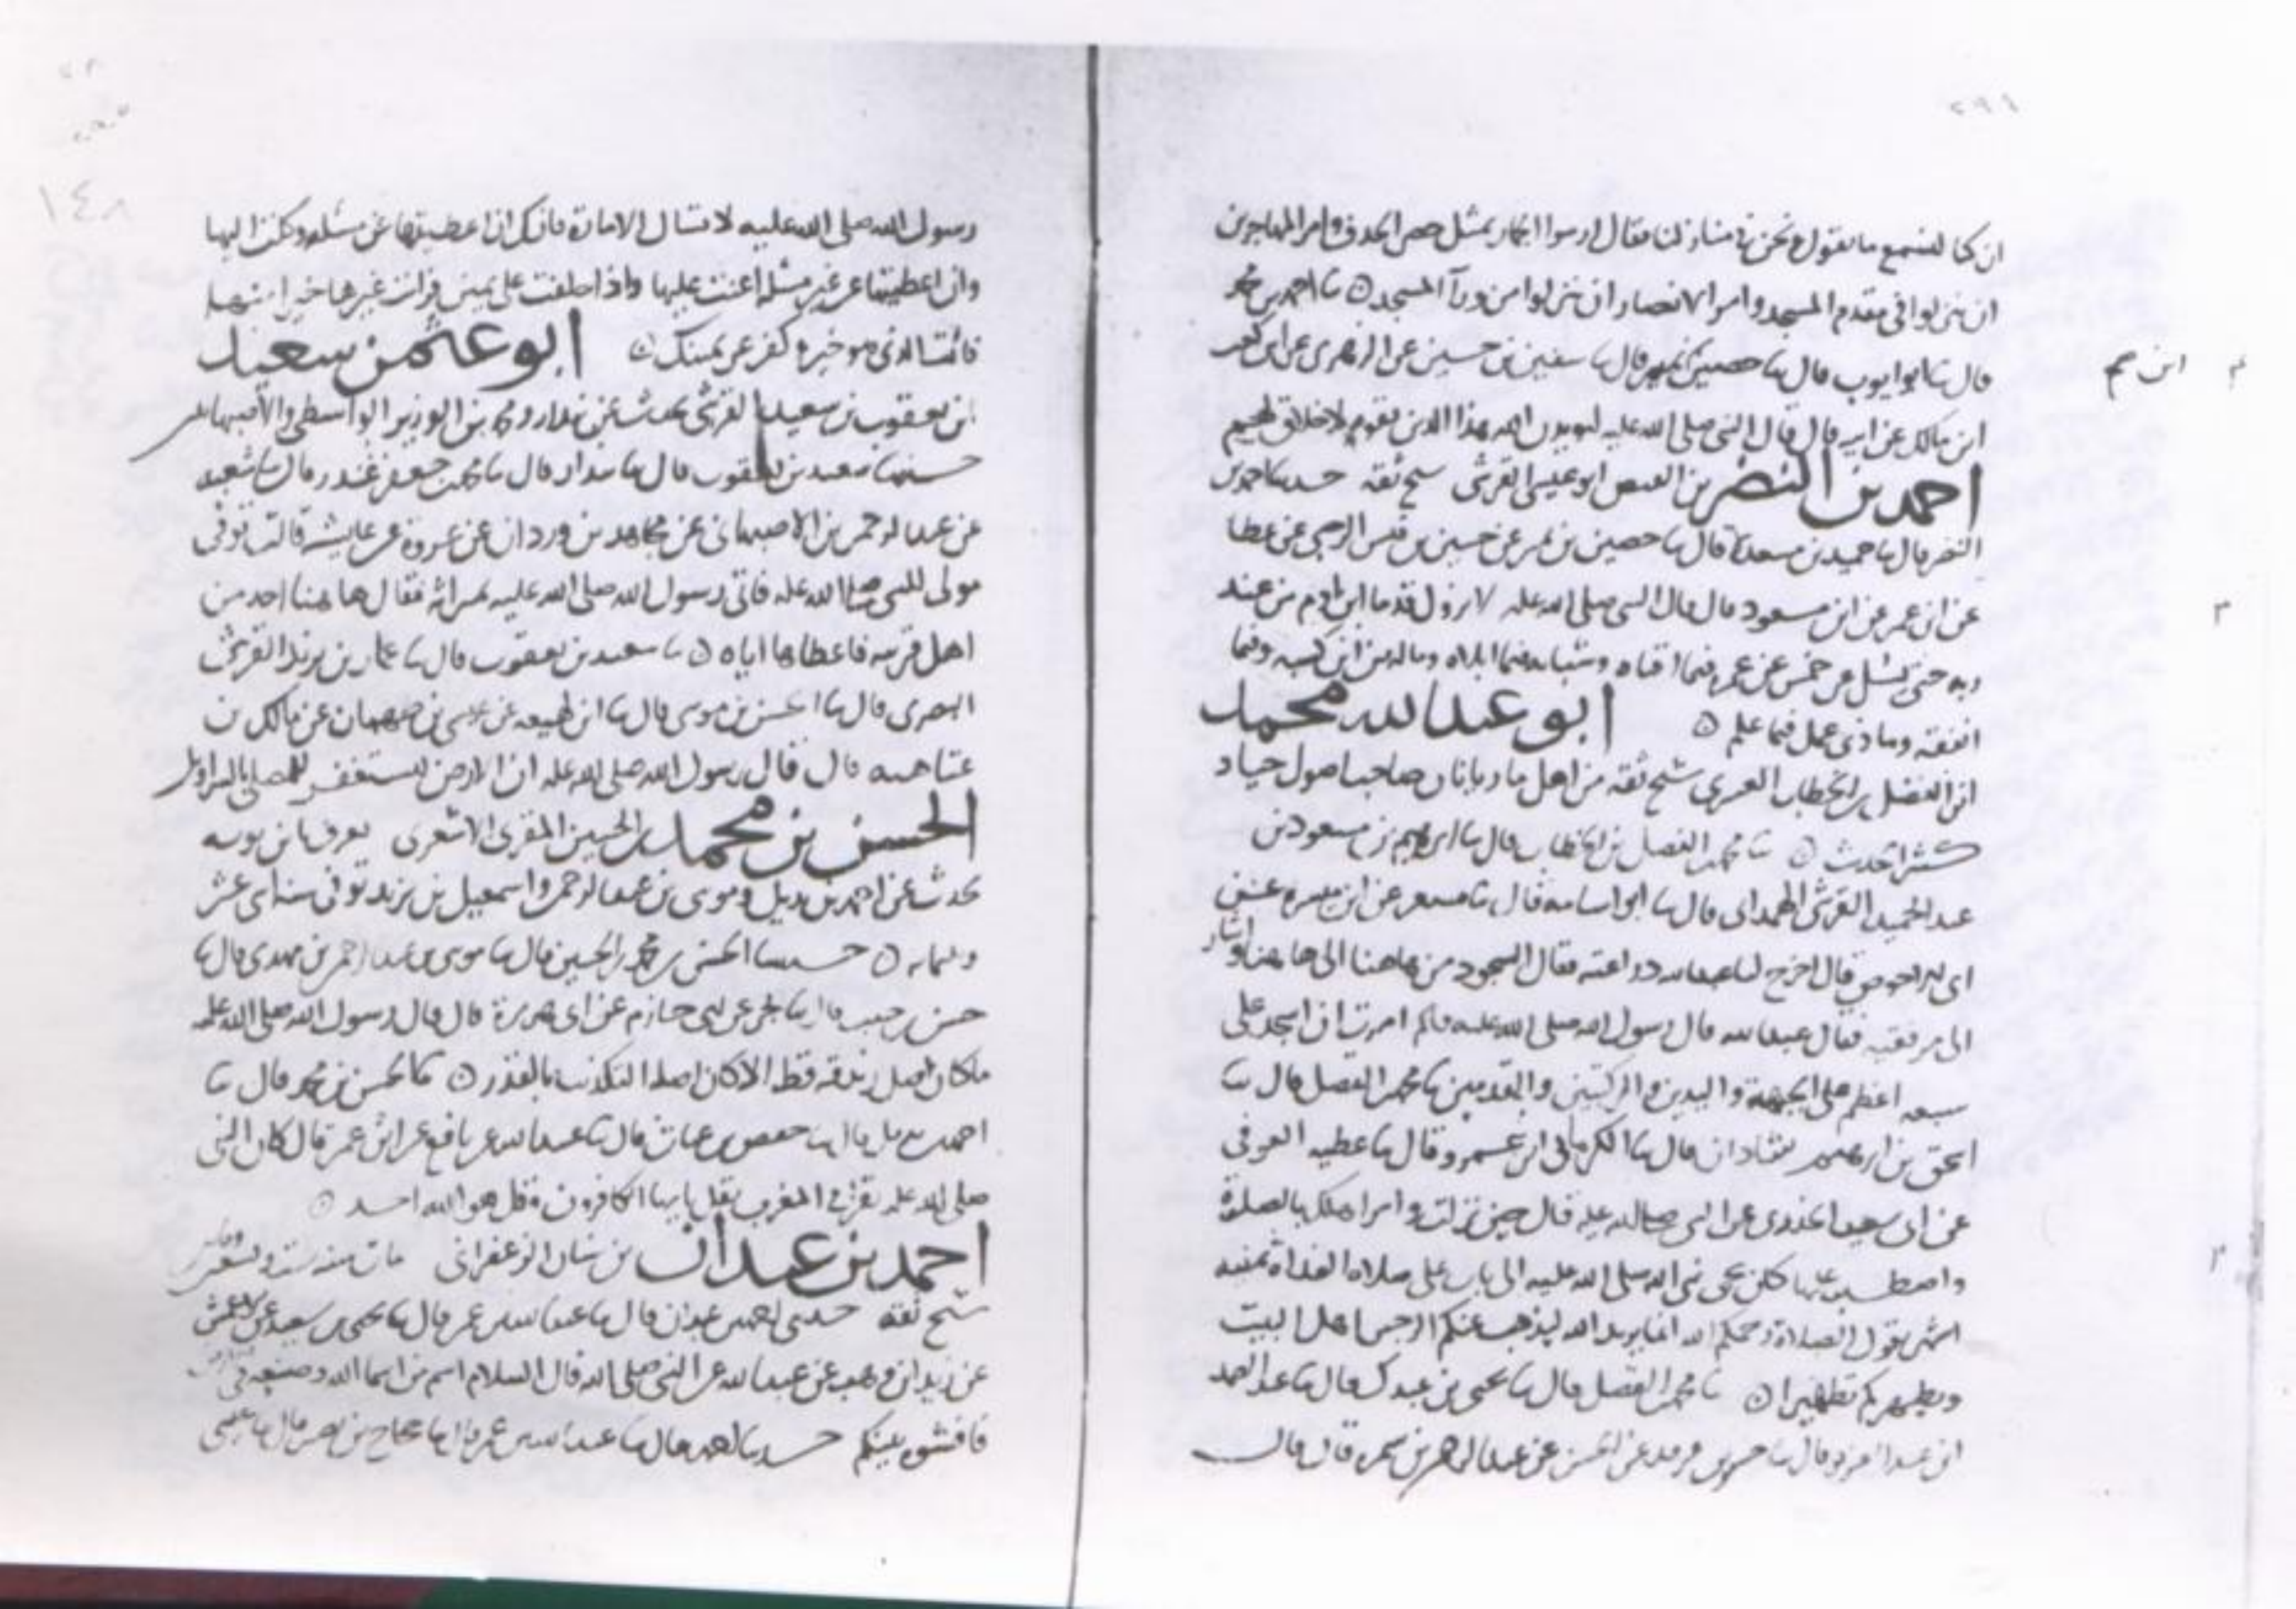 ٢٩٦
ان كنا لنسمع ما تقول ونحن في منازلنا فقال ارموا الجمار بمثل حصى الخذف وامر المهاجرين
ان ينزلوا في مقدم المسجد وامر الانصار ان ينزلوا من ورآ المسجد ○ ثنا احمد بن محمد
قال ثنا ابو ايوب قال ثنا حصين بن نمير قال ثنا سفين بن حسين عن الزهري عن ابن كعب
ابن مالك عن ابيه قال قال النبي صلى الله عليه ليويدن الله هذا الدين بقوم لا خلاق لهم
احمد بن النضر بن ابو عيسى القرشي شيخ ثقة حدثنا احمد بن
النضر قال ثنا حميد بن مسعدة قال ثنا حصين بن نمير عن حسين بن قيس الرحبي عن عطا
عن ابن عمر عن ابن مسعود قال قال النبي صلى الله عليه لا تزول قدما ابن ادم من عند
ربه حتى يسل عن خمس عن عمره فيما افناه وشبابه فيما ابلاه وماله من اين كسبه وفيما
انفقه وماذي عمل فيما علم ○ ابو عبد الله محمد
ابن الفضل بن الخطاب شيخ ثقة من اهل ماربانان صاحب اصول جياد
كثير الحديث ○ ثنا محمد بن الفضل بن الخطاب قال ثنا ابراهيم بن مسعود بن
عبد الحميد القرشي الهمداني قال ثنا ابو اسامة قال ثنا مسعر عن
قال اخرج لنا عبد الله ذراعيه فقال السجود من هاهنا الى هاهنا واشار
الى مرفقيه فقال عبد الله قال رسول الله صلى الله عليه امرت ان اسجد على
سبعة اعظم على الجبهة واليدين والركبتين والقدمين ثنا محمد بن الفضل قال ثنا
اسحق بن ابرهيم شاذان قال ثنا الكرماني بن عمرو قال ثنا عطية العوفي
عن ابي سعيد الخدري عن النبي صلى الله عليه قال حين نزلت وامر اهلك بالصلوة
واصطبر عليها كان يجي نبي الله صلى الله عليه الى باب علي صلاة الغداة ثمنية
اشهر يقول الصلاة رحمكم الله انما يريد الله ليذهب عنكم الرجس اهل البيت
ويطهركم تطهيرا ○ ثنا محمد بن الفضل قال ثنا يحيى بن عبدك قال ثنا عبد الصمد
ابن عبد العزيز قال ثنا عن الحسن عن عبد الرحمن بن سمرة قال قال
١٤٨
رسول الله صلى الله عليه لا تسال الامارة فانك ان اعطيتها عن مسئلة وكلت اليها
وان اعطيتها عن غير مسئلة اعنت عليها واذا حلفت على يمين فرايت غيرها خيرا منها
فائت الذي هو خير وكفر عن يمينك ○ ابو عثمن سعيد
ابن يعقوب بن سعيد القرشي يحدث عن بندار ومحمد بن الوزير الواسطي والاصبهانيين
حدثنا سعيد بن يعقوب قال ثنا بندار قال ثنا محمد بن جعفر غندر قال ثنا شعبة
عن عبد الرحمن بن الاصبهاني عن مجاهد بن وردان عن عروة عن عايشة قالت توفي
مولى للنبي صلى الله عليه فاتي رسول الله صلى الله عليه بميراثه فقال هاهنا احد من
اهل قريته فاعطاها اياه ○ ثنا سعيد بن يعقوب قال ثنا عمار بن يزيد القرشي
البصري قال ثنا الحسن بن موسى قال ثنا ابن لهيعة عن عن مالك بن
عتاهية قال قال رسول الله صلى الله عليه ان الارض لتستغفر للمصلي بالسراويل
الحسن بن محمد بن الحسين المقري الاشعري يعرف بابن بوبه
يحدث عن احمد بن بديل وموسى بن عبد الرحمن واسمعيل بن يزيد توفي سنة اثنى عشر
وثلثماية ○ حدثنا الحسن بن محمد بن الحسين قال ثنا موسى بن عبد الرحمن بن مهدي قال ثنا
حسن بن حبيب قال ثنا بحر عن ابي حازم عن ابي هريرة قال قال رسول الله صلى الله عليه
ما كان اصل زندقة قط الا كان اصلها التكذيب بالقدر ○ ثنا الحسن بن محمد قال ثنا
احمد بن بديل قال ثنا حفص بن غياث قال ثنا عبيد الله عن نافع عن ابن عمر قال كان النبي
صلى الله عليه يقرا في المغرب بقل يا ايها الكافرون وقل هو الله احد ○
احمد بن عبدان بن سنان الزعفراني مات سنة ست وتسعين وماتين
شيخ ثقة حدثني احمد بن عبدان قال ثنا عبد الله بن عمر قال ثنا يحيى بن سعيد عن الاعمش
عن زيد بن وهب عن عبد الله عن النبي صلى الله قال السلام اسم من اسما الله وضعه في الارض
فافشوه بينكم حدثنا احمد قال ثنا عبد الله بن عمر قال ثنا حجاج بن نصير قال ثنا عيسى